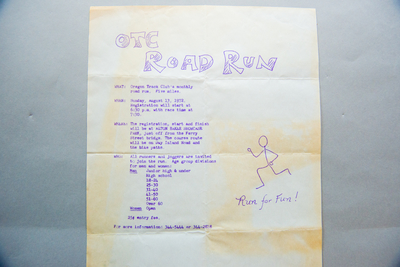 OTC
ROAD RUN
what: Oregon Track Club's monthly
road run. Five miles.
when: Sunday, August 13, 1972.
Registration will start at
6:30 p.m. with race time at
7:00.
where: The registration, start and finish
will be at ALTON BAKER
PARK, just off from the Ferry
Street bridge. The course route
will be on Day Island Road and
the bike paths.
who: All runners and joggers are invited
to join the run. Age group divisions
for men and women:
Men Junior high & under
High school
18-24
25-30
31-40
41-50
51-60
Over 60
Women Open
25¢ entry fee.
For more information:
Run for Fun!